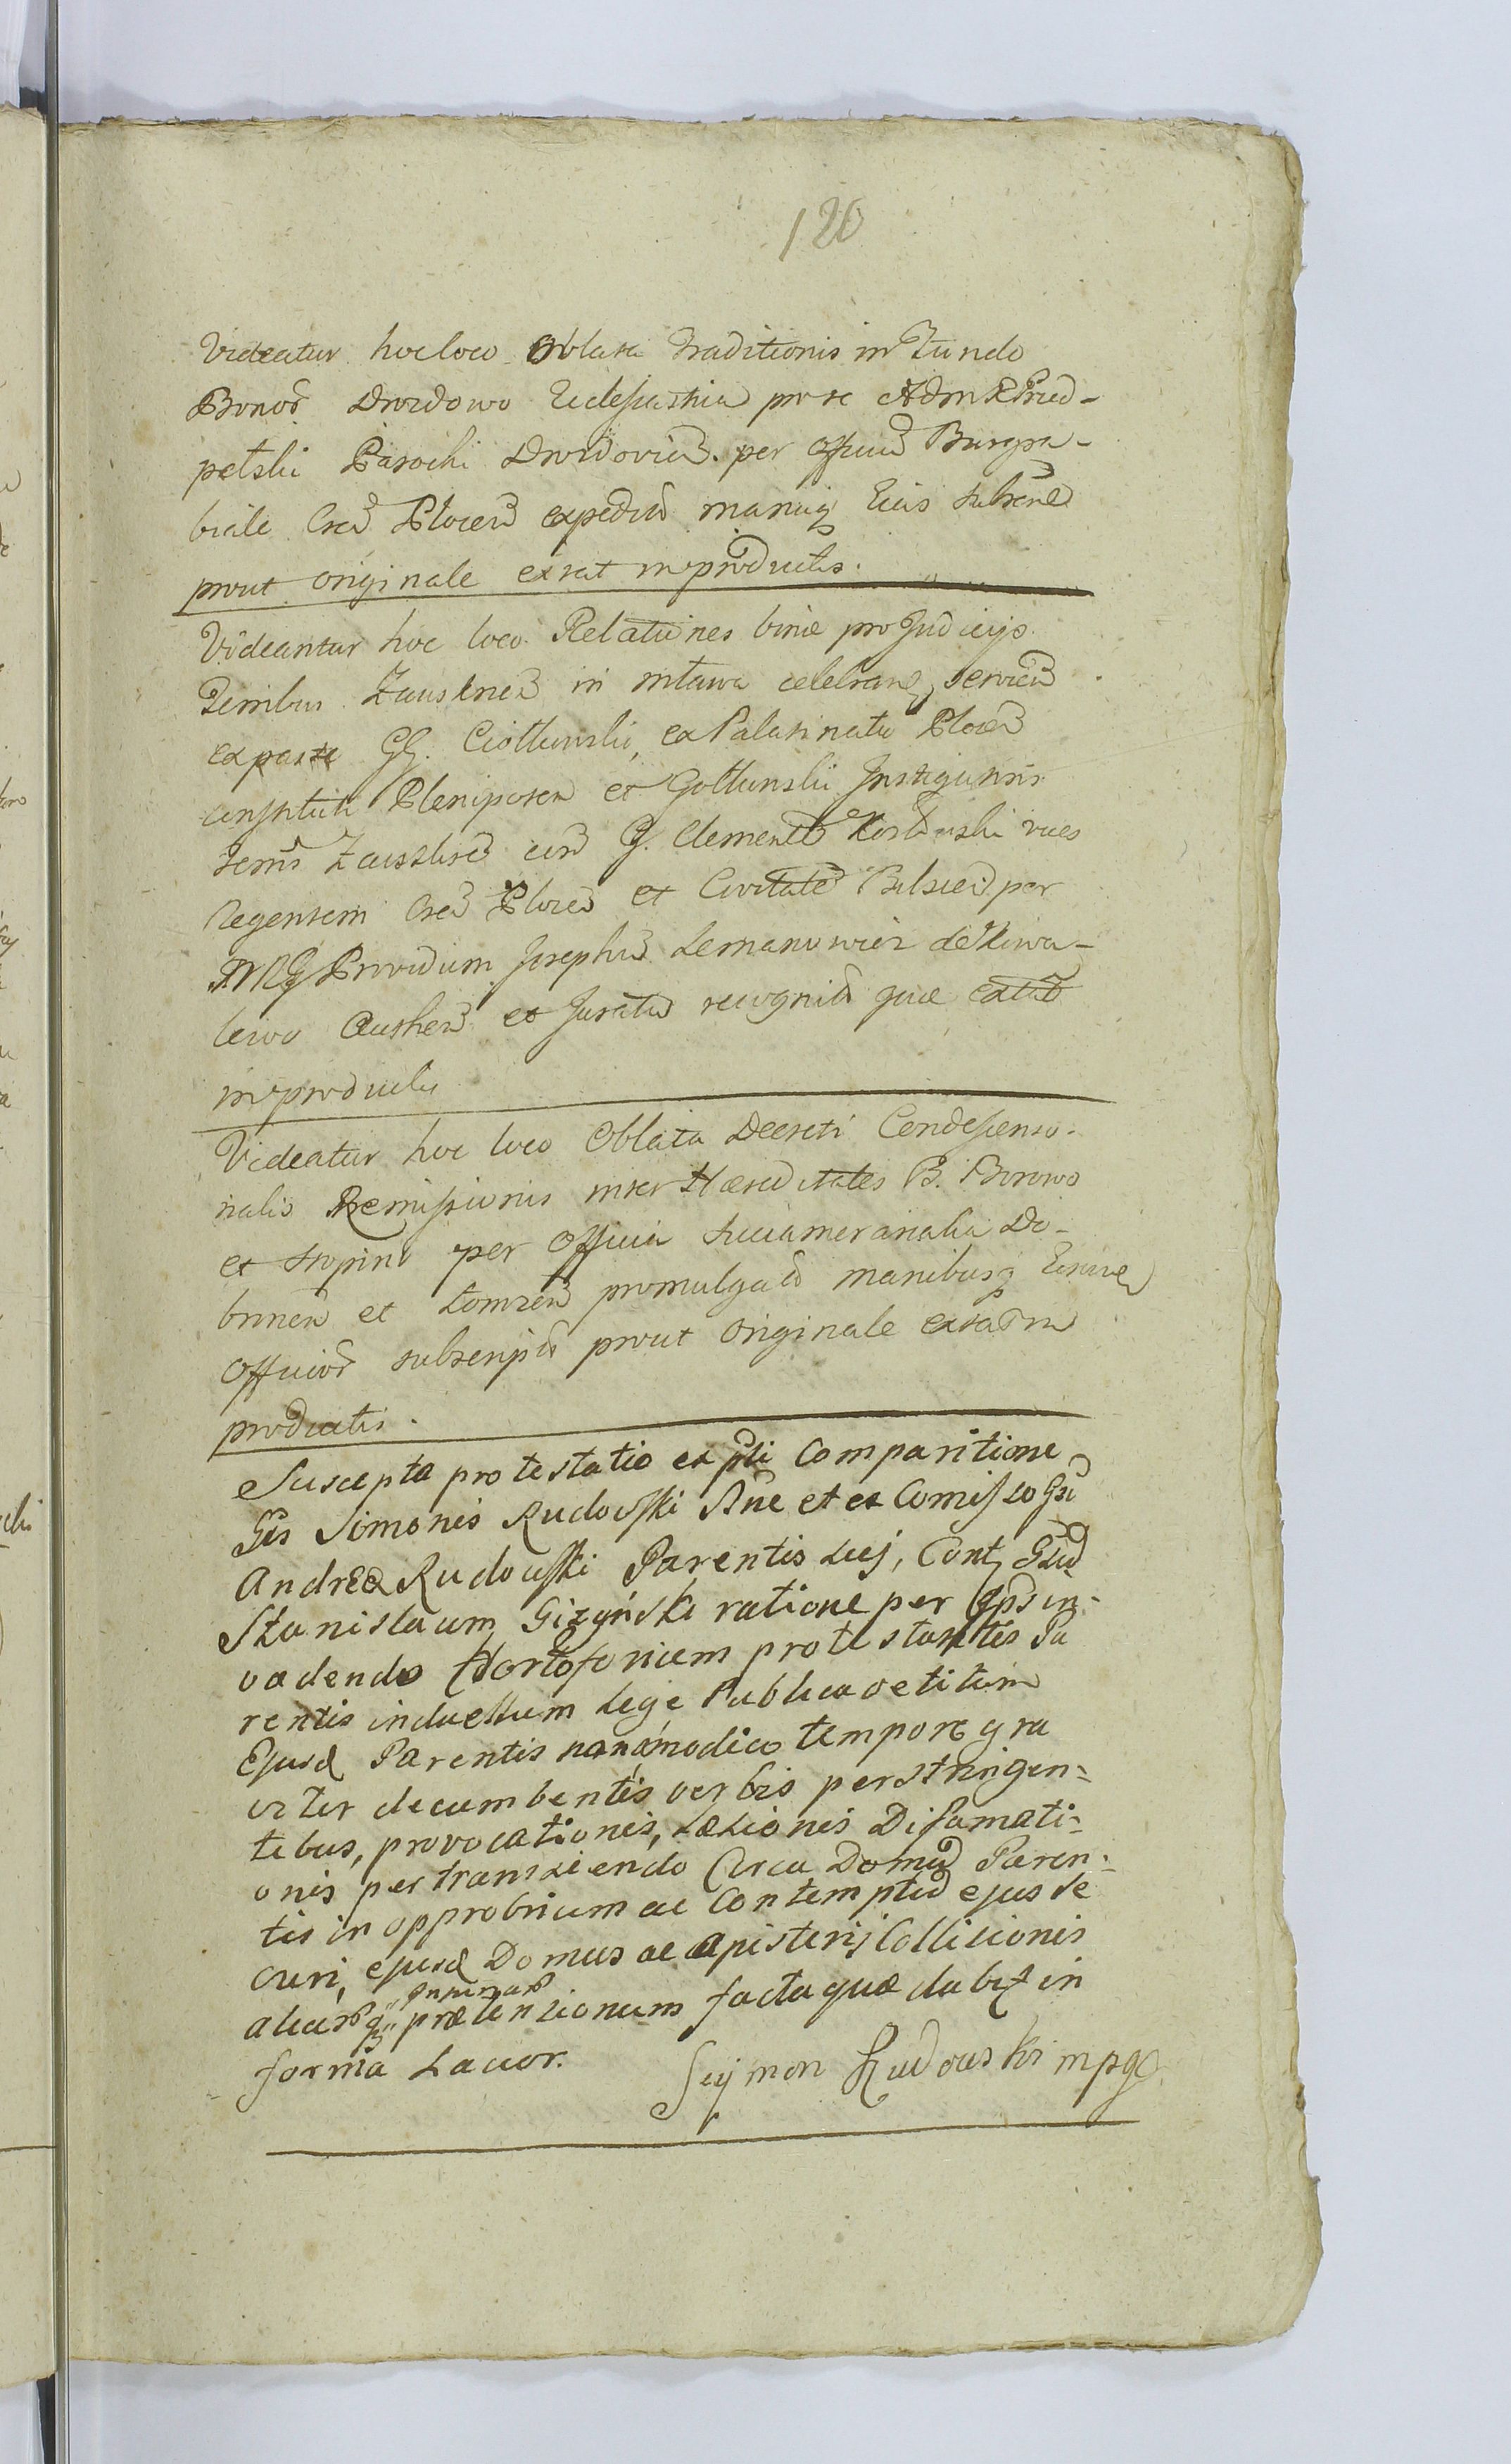 120
Videatur hoc loco Oblata Traditionis in Fundo
Bonor Drozdowo Eclesiastica parte Adm R Pred-
petski Parochi Drozdovien. per Officiu Burgra-
biale Cren Plocen expedita manuq Eius subscrip
prout originale extat in productis.
Videantur hoc loco Relationes binæ pro Judicijs
Terribus Zauskrnen in Mława celebran, servien
ex parte GG. Ciołkowski, ex Palatinatu Plocen
constituti Plenipoten et Gotkowski Instigatoris
Terris Zauskren cum G. Clemente vices
Regentem Cren Plocen et Civitate Bilscen per
Providum Josephum Lemanowicz de Kowa-
lewo Authen et Juratu recognita quæ extat
in productis
Videatur hoc loco Oblata Decreti Condescenso-
nalis Remissionis inter Hæreditates B. Borowo
et Stopino per Officia Succameranalia Do-
brinen et Lomzen promulgata manibusq
Officior subscripta prout Originale extat in
productis.
Suscepta protestatio ex pti Comparitione
Gsi Simonis Rudowski Sue et ex Comisso Gsi
Andreæ Rudowski Parentis sui, Cont Gsu
Stanislaum Giżyński ratione per Ipsu in-
vadendo Hortofonicum protestantis Pa
rentis inductum Lege Publica vetitum
Ejusd Parentis non modico tempore gra
viter decumbentis verbis perstringen-
tibus, provocationis, Læsionis Difamati-
onis pertranseundo Circa Domu Paren-
tis in opprobrium ac Contemptu ejus se
curi, ejusd Domus ac apisterij Collisionis
aliarq prætensionum facta quæ dabit in
forma Latior. Szymon Rudowski mpp